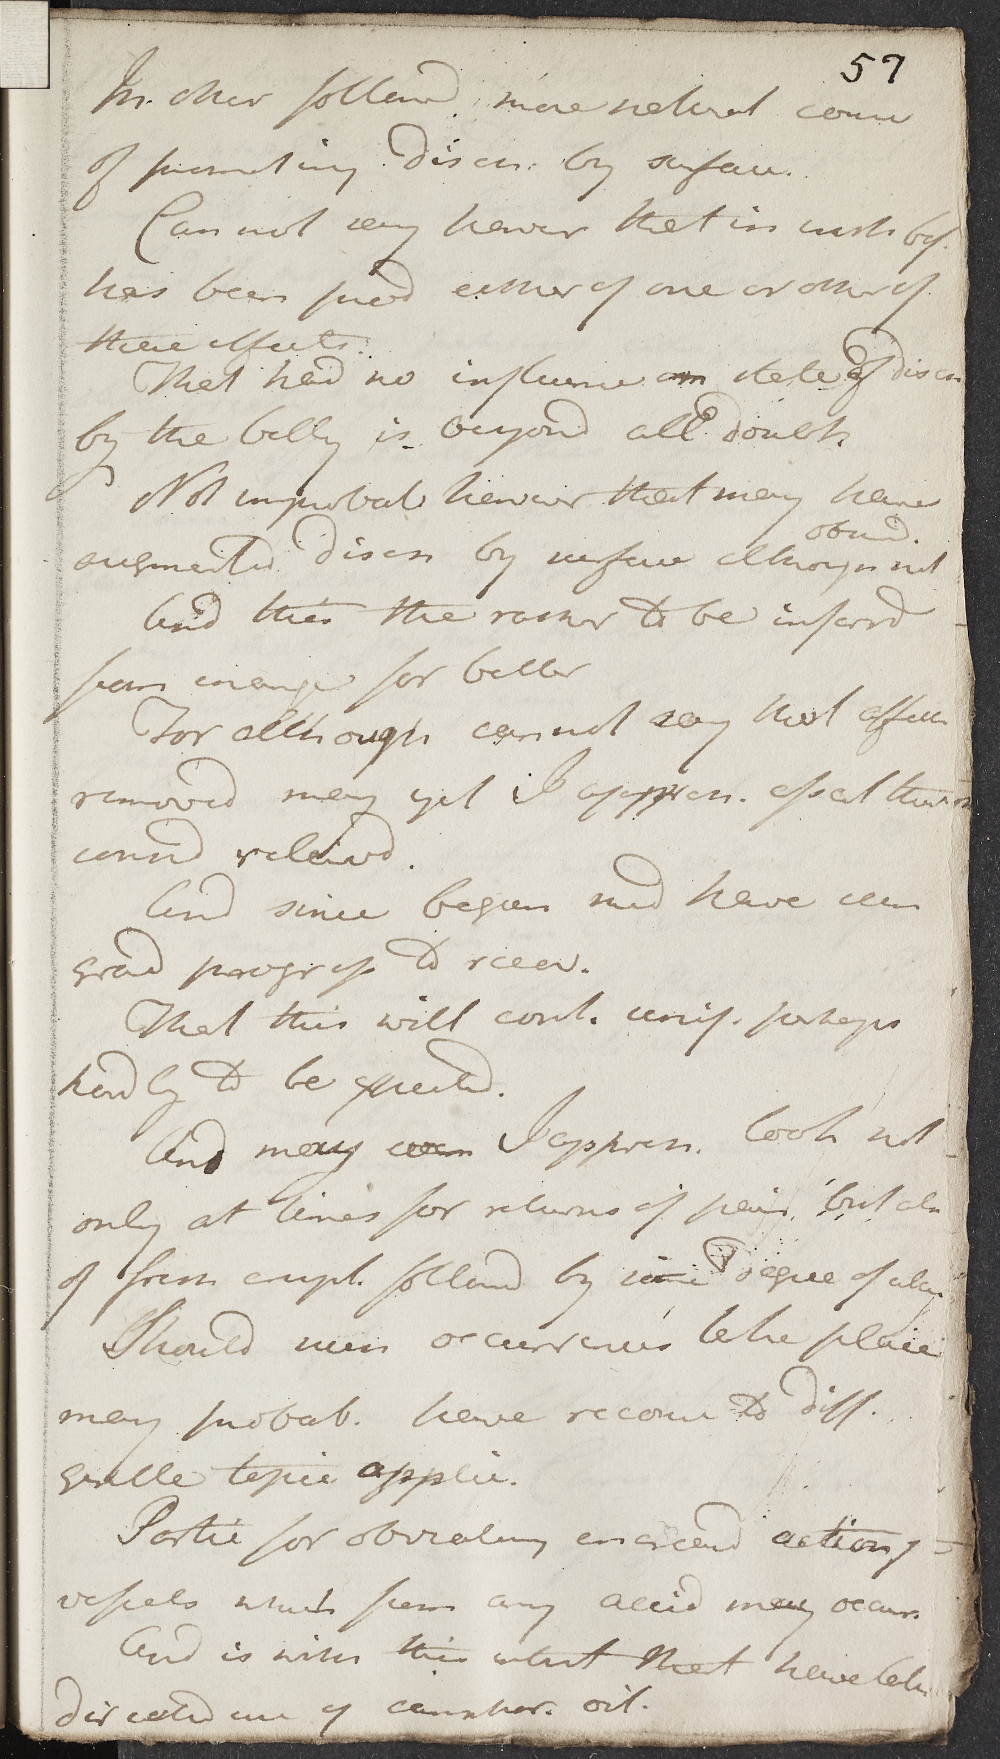 57
In other followd more natural course
of promoting disch. by surface.
Cannot say howevr that in such
has been prod either of one or other of
these effects.
That had no influence on state of disch
by the belly is beyond all doubt
Not improbab howevr that may have
obvid.
augmented disch by surface although not
And this the rather to be inferrd
from change for better
For although cannot say that affec
removed may yet I appreh. assert
considd relievd.
And since began med have seen
grad progress to recov.
That this will cont. unif. perhaps
hardly to be expected.
And may I appreh. look not
only at times for returns of pain but also
of fresh erupt. followd by some degree of
Should such occurrences take place
may probab. have recourse to diff.
gentle topic applic.
Partic for obviating encreasd action of
vessels which from any accid may occur.
And is with this intent that have late
directed use of camphor. oil.